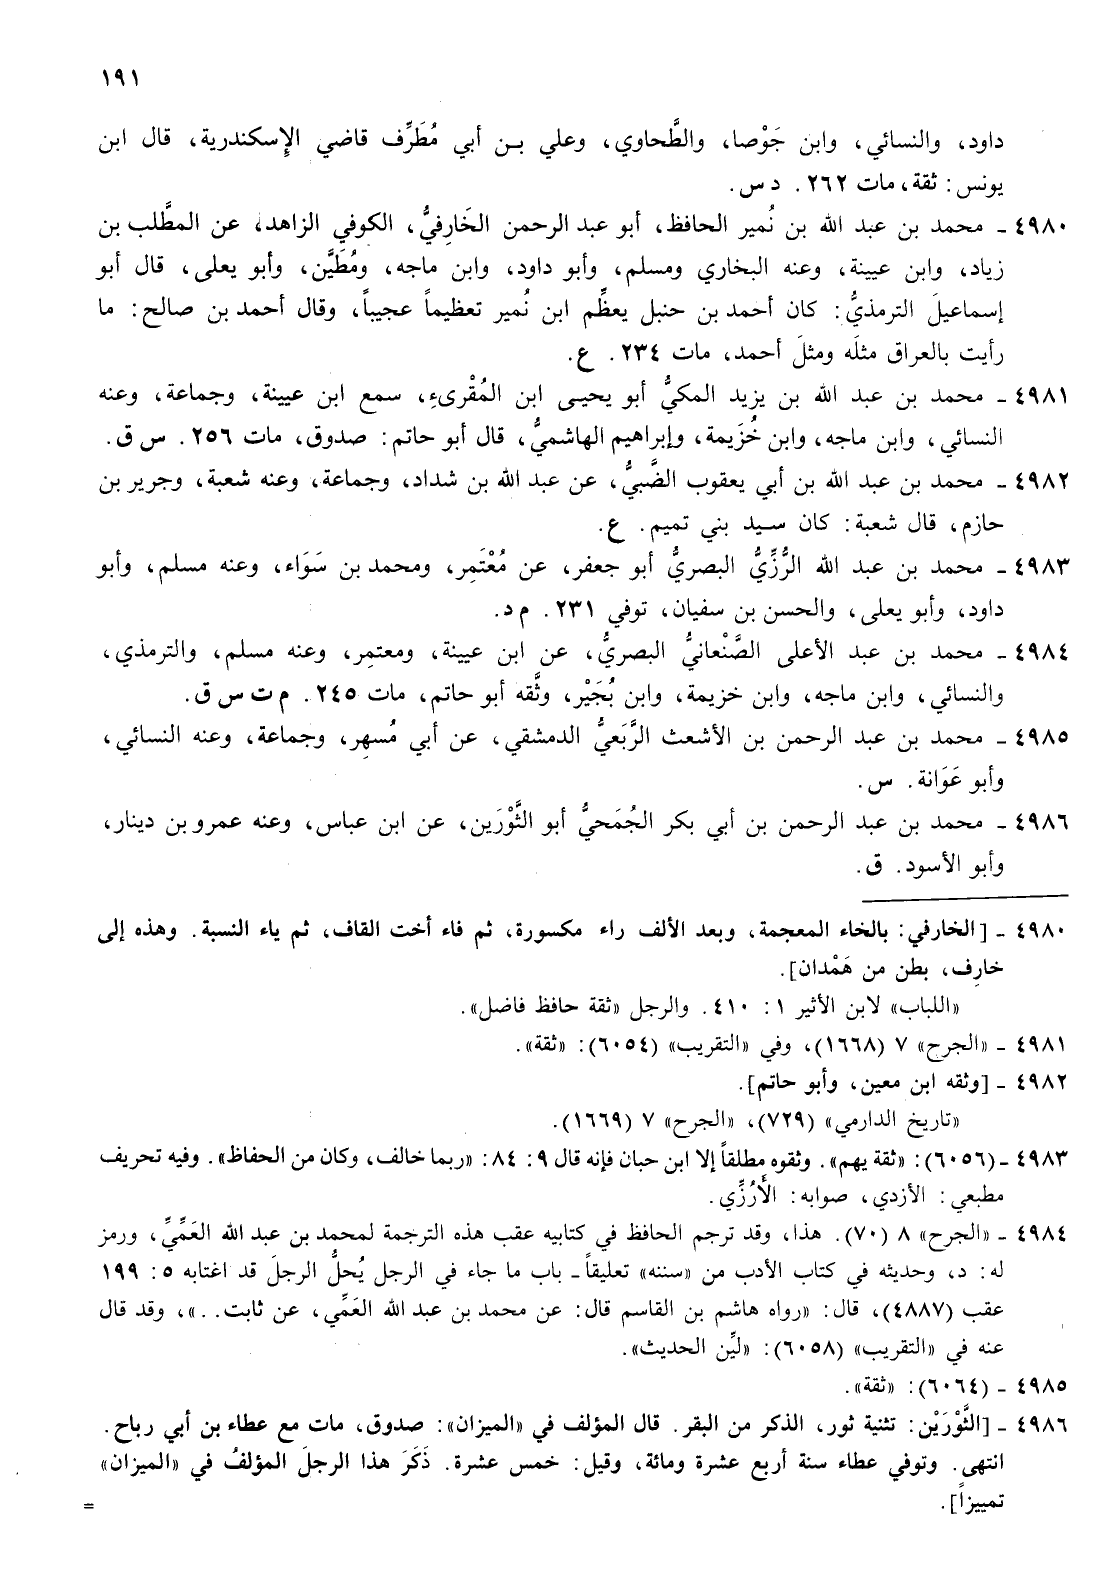 ١٩١
داود، والنسائي، وابن جَوْصا، والطَّحاوي، وعلي بـن أبي مُطَرِّف قاضي الإِسكندرية، قال ابن
يونس: ثقة، مات ٢٦٢. د س.
٤٩٨٠ ـ محمد بن عبد الله بن نُمير الحافظ، أبو عبد الرحمن الخَارِفيُّ، الكوفي الزاهد، عن المطَّلب بن
زياد، وابن عيينة، وعنه البخاري ومسلم، وأبو داود، وابن ماجه، ومُطَيَّن، وأبو يعلى، قال أبو
إسماعيلَ الترمذيُّ: كان أحمد بن حنبل يعظِّم ابن نُمير تعظيماً عجيباً، وقال أحمد بن صالح: ما
رأيت بالعراق مثلَه ومثلَ أحمد، مات ٢٣٤. ع.
٤٩٨١ ـ محمد بن عبد الله بن يزيد المكيُّ أبو يحيى ابن المُقْرىء، سمع ابن عيينة، وجماعة، وعنه
النسائي، وابن ماجه، وابن خُزَيمة، وإبراهيم الهاشميُّ، قال أبو حاتم: صدوق، مات ٢٥٦. س ق.
٤٩٨٢ ـ محمد بن عبد الله بن أبي يعقوب الضَّبيُّ، عن عبد الله بن شداد، وجماعة، وعنه شعبة، وجرير بن
حازم، قال شعبة: كان سيد بني تميم. ع.
٤٩٨٣ ـ محمد بن عبد الله الرُّزِّيُّ البصريُّ أبو جعفر، عن مُعْتَمِر، ومحمد بن سَوَاء، وعنه مسلم، وأبو
داود، وأبو يعلى، والحسن بن سفيان، توفي ٢٣١. م د.
٤٩٨٤ ـ محمد بن عبد الأعلى الصَّنْعانيُّ البصريُّ، عن ابن عيينة، ومعتمِر، وعنه مسلم، والترمذي،
والنسائي، وابن ماجه، وابن خزيمة، وابن بُجَيْر، وثَّقه أبو حاتم، مات ٢٤٥. م ت س ق.
٤٩٨٥ ـ محمد بن عبد الرحمن بن الأشعث الرَّبَعيُّ الدمشقي، عن أبي مُسهِر، وجماعة، وعنه النسائي،
وأبو عَوَانة. س.
٤٩٨٦ ـ محمد بن عبد الرحمن بن أبي بكر الجُمَحيُّ أبو الثَّوْرَين، عن ابن عباس، وعنه عمرو بن دينار،
وأبو الأسود. ق.
٤٩٨٠ ـ [الخارفي: بالخاء المعجمة، وبعد الألف راء مكسورة، ثم فاء أخت القاف، ثم ياء النسبة. وهذه إلى
خارِف، بطن من هَمْدان].
«اللباب» لابن الأثير ١: ٤١٠. والرجل «ثقة حافظ فاضل».
٤٩٨١ ـ «الجرح» ٧ (١٦٦٨)، وفي «التقريب» (٦٠٥٤): «ثقة».
٤٩٨٢ ـ [وثقه ابن معين، وأبو حاتم].
«تاريخ الدارمي» (٧٢٩)، «الجرح» ٧ (١٦٦٩).
٤٩٨٣ ـ (٦٠٥٦): «ثقة يهم». وثقوه مطلقاً إلا ابن حبان فإنه قال ٩: ٨٤: «ربما خالف، وكان من الحفاظ». وفيه تحريف
مطبعي: الأزدي، صوابه: الأُرُزِّي.
٤٩٨٤ ـ «الجرح» ٨ (٧٠). هذا، وقد ترجم الحافظ في كتابيه عقب هذه الترجمة لمحمد بن عبد الله العَمِّيِّ، ورمز
له: د، وحديثه في كتاب الأدب من «سننه» تعليقاً ـ باب ما جاء في الرجل يُحلُّ الرجلَ قد اغتابه ٥: ١٩٩
عقب (٤٨٨٧)، قال: «رواه هاشم بن القاسم قال: عن محمد بن عبد الله العَمِّي، عن ثابت..»، وقد قال
عنه في «التقريب» (٦٠٥٨): «ليِّن الحديث».
٤٩٨٥ ـ (٦٠٦٤): «ثقة».
٤٩٨٦ ـ [الثَّوْرَيْن: تثنية ثور، الذكر من البقر. قال المؤلف في «الميزان»: صدوق، مات مع عطاء بن أبي رباح.
انتهى. وتوفي عطاء سنة أربع عشرة ومائة، وقيل: خمس عشرة. ذَكَرَ هذا الرجلَ المؤلفُ في «الميزان»
تمييزاً].
=